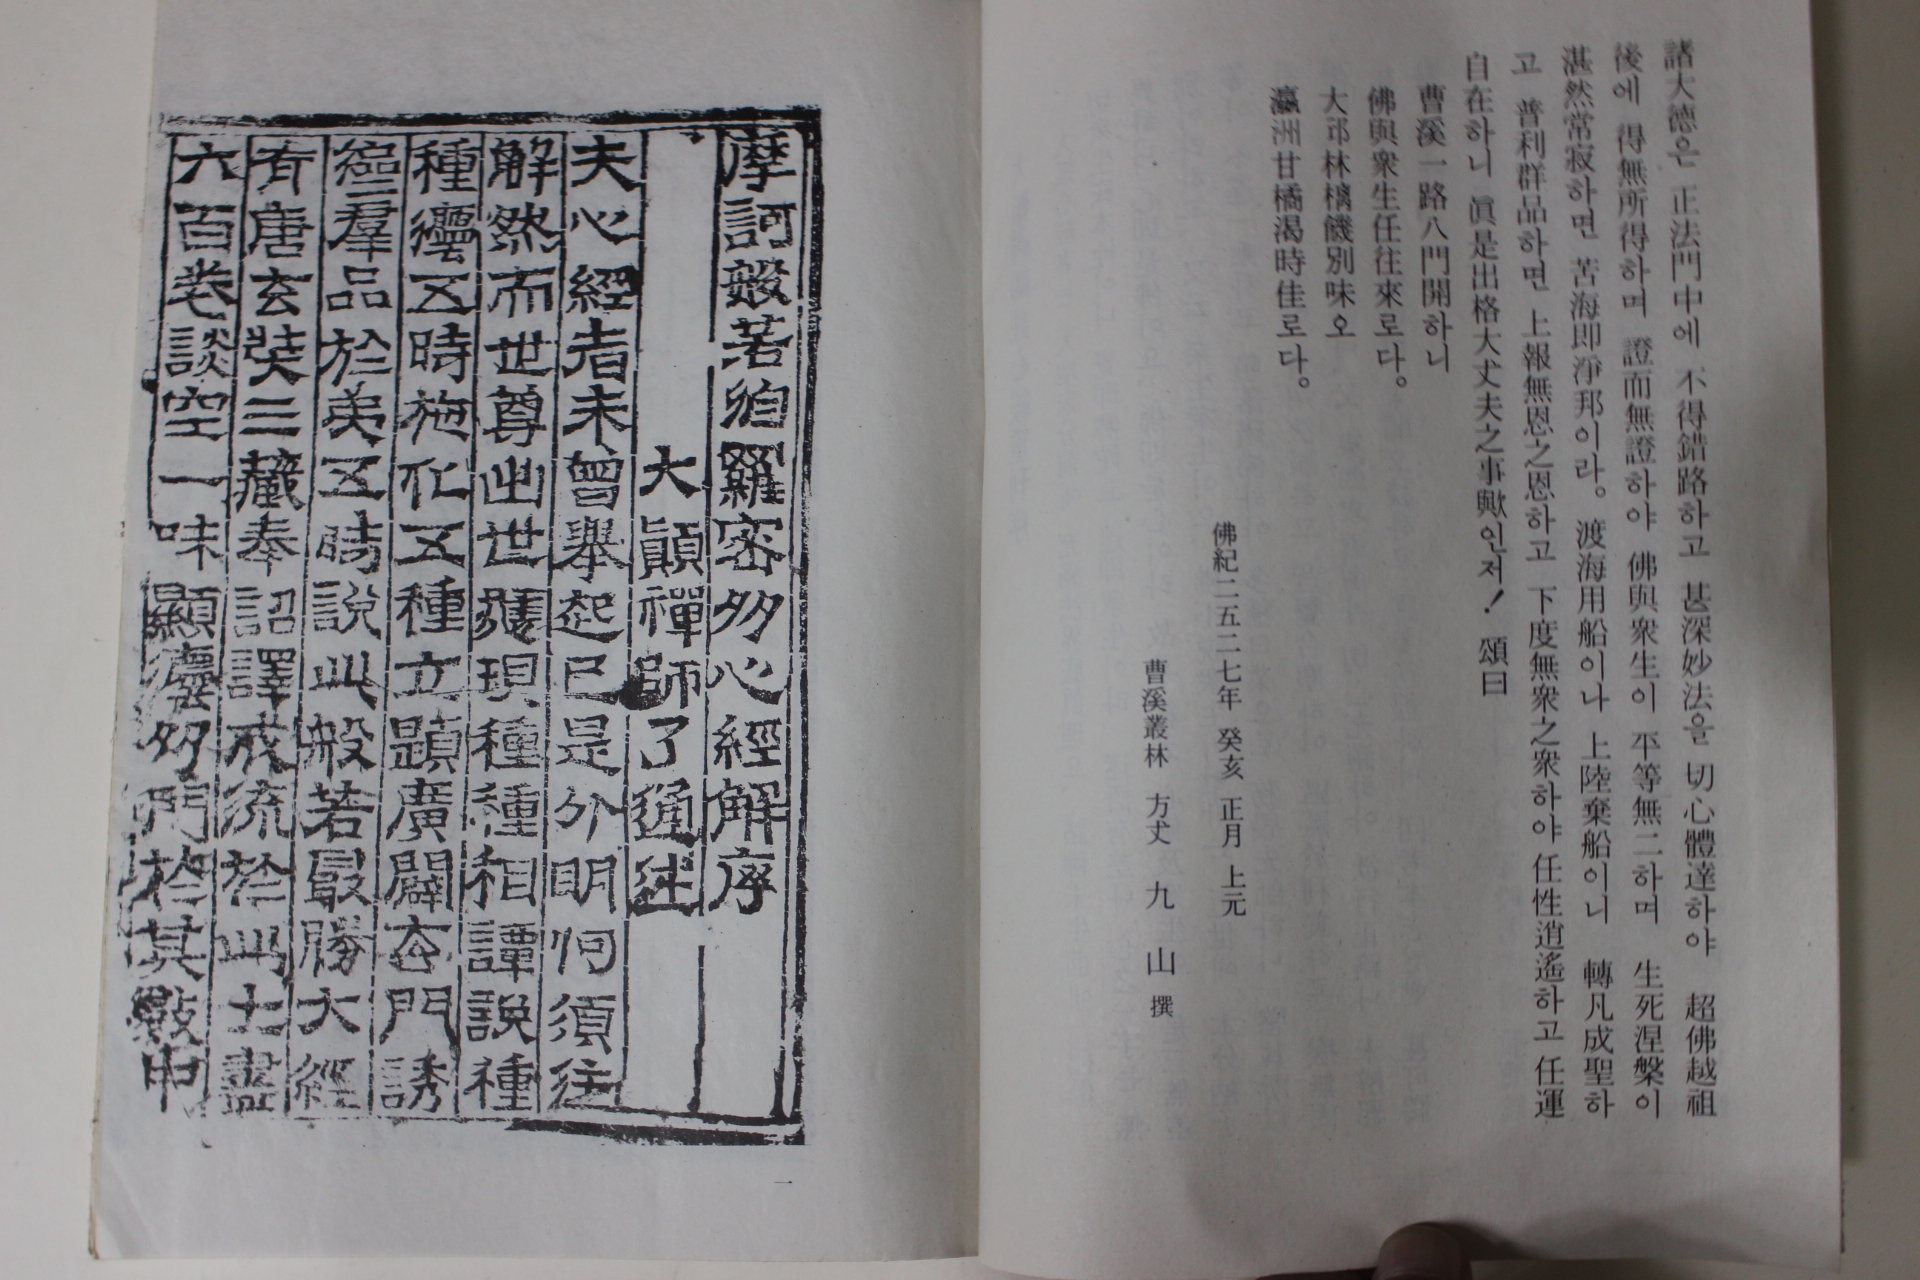 諸大德은 正法門中에 不得錯路하고 甚深妙法을 切心體達하야 超佛越祖
後에 得無所得하며 證而無證하야 佛與衆生이 平等無二하며 生死涅槃이
湛然常寂하면 苦海即淨邦이라。 渡海用船이나 上陸棄船이니 轉凡成聖하
고 普利群品하면 上報無恩之恩하고 下度無衆之衆하야 任性逍遙하고 任運
自在하니 眞是出格大丈夫之事歟인저! 頌曰
曹溪一路八門開하니
佛與衆生任往來로다。
大邱林檎饑別味오
瀛洲甘橘渴時佳로다。
佛紀二五二七年 癸亥 正月 上元
曹溪叢林 方丈 九 山 撰
摩訶般若波羅密多心經解序
大顚禪師了通述
夫心經者未曾擧起已是分明何須往
解然而世尊出世獲現種種相譚說種
種德五時施化五種立題廣闢玄門誘
羣品於美五時說此般若最勝大經
有唐玄奘三藏奉詔譯成流於此土盡
六百卷談空一味顯德多門於其數中
一